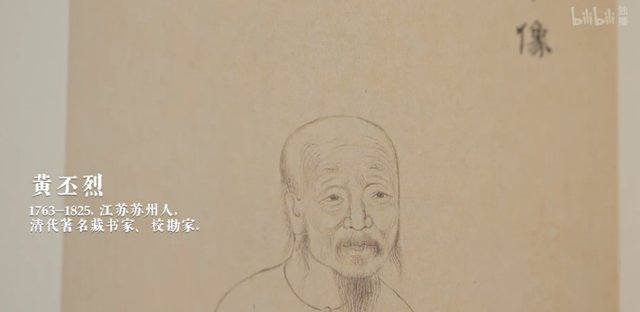 像
bilibili 独播
黄丕烈
1763—1825，江苏苏州人，
清代著名藏书家、校勘家。